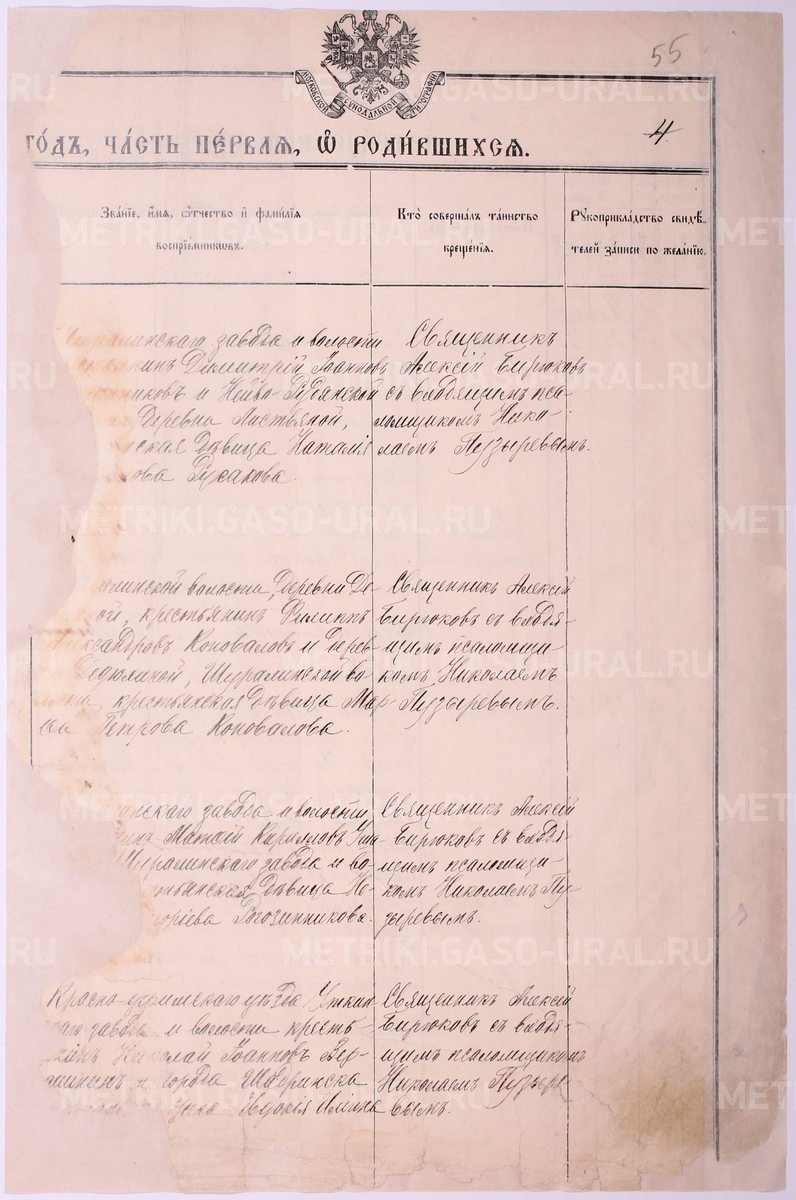 55
4.
МОСКОВСКОЙ СѴНОДАЛЬНОЙ ТИПОГРАФІИ
го́дъ, ча́сть пе́рваѧ, ѡ҆ роди́вшихсѧ.
Зва́нїе, и҆́мѧ, ѻ҆́тчество и҆ фами́лїѧ
воспрїе́мникѡвъ.
Кто̀ соверша́лъ та́инство
креще́нїѧ.
Рꙋкоприкла́дство свидѣ́-
телей за́писи по жела́нїю.
завода и волости
Димитрій Іоанновъ
никовъ и Нейво-Рудянской
Деревни Листвяной,
ская дѣвица Наталія
нова Русакова.
Священникъ
Алексій Бирюковъ
съ и. д. псa-
ломщикомъ Нико-
лаемъ Пузыревымъ.
алинской волости, деревни Де-
ной, крестьянинъ Филиппъ
ксандровъ Коноваловъ и дерев-
Федюлиной, Шуралинской во-
лости, крестьянская дѣвица Мар-
Петрова Коновалова.
Священникъ Алексій
Бирюковъ съ
щимъ псаломщи-
комъ Николаемъ
Пузыревымъ.
инскаго завода и волости,
Матвій Кирилловъ
Шуралинскаго завода и во-
стьянская дѣвица
горіева Рогозинникова.
Священникъ Алексій
Бирюковъ съ
щимъ псаломщи-
комъ Николаемъ Пу-
зыревымъ.
Красно-уфимскаго уѣзда, Уткин-
скаго завода и волости кресть-
Николай Іоанновъ Вер-
и города Шадринска
Евдокія
Священникъ Алексій
Бирюковъ съ
щимъ псаломщикомъ
Николаемъ Пузыре-
вымъ.
METRIKI.GASO-URAL.RU